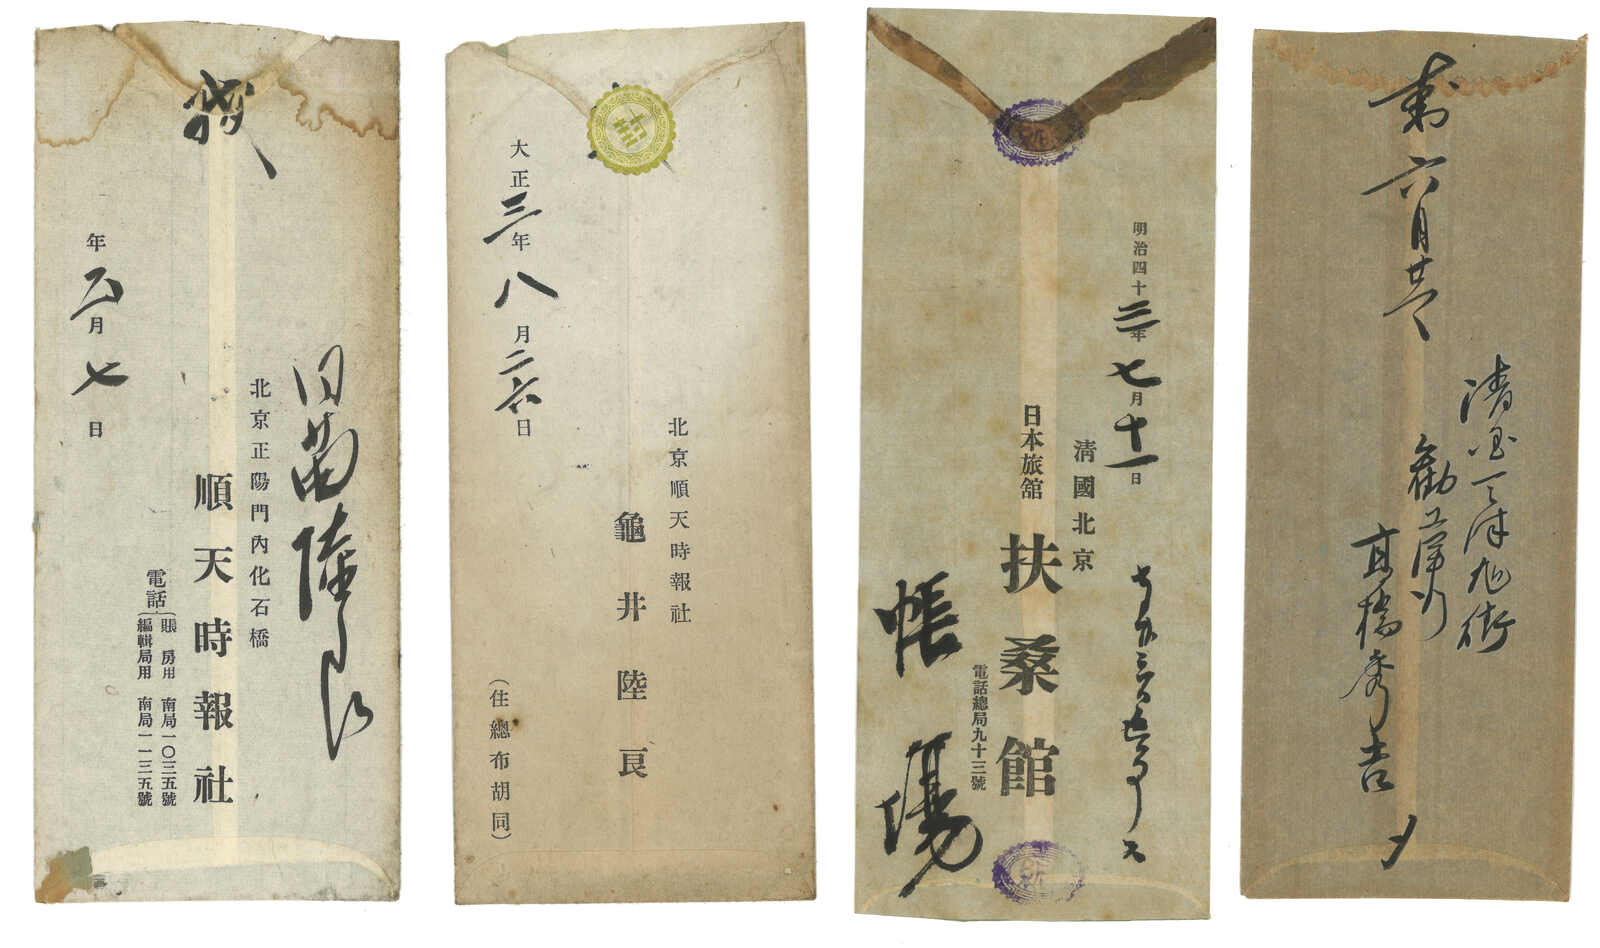 年二月七日
北京正陽門內化石橋
順天時報社
電話
賬房用 南局一〇三五號
編輯局用 南局一一三五號
封
大正三年八月二六日
北京順天時報社
龜井陸良
(住總布胡同)
明治四十三年七月十一日
清國北京
日本旅舘
扶桑館
電話總局九十三號
帳場
六月廿
清国天津旭街
勧業
高橋秀吉